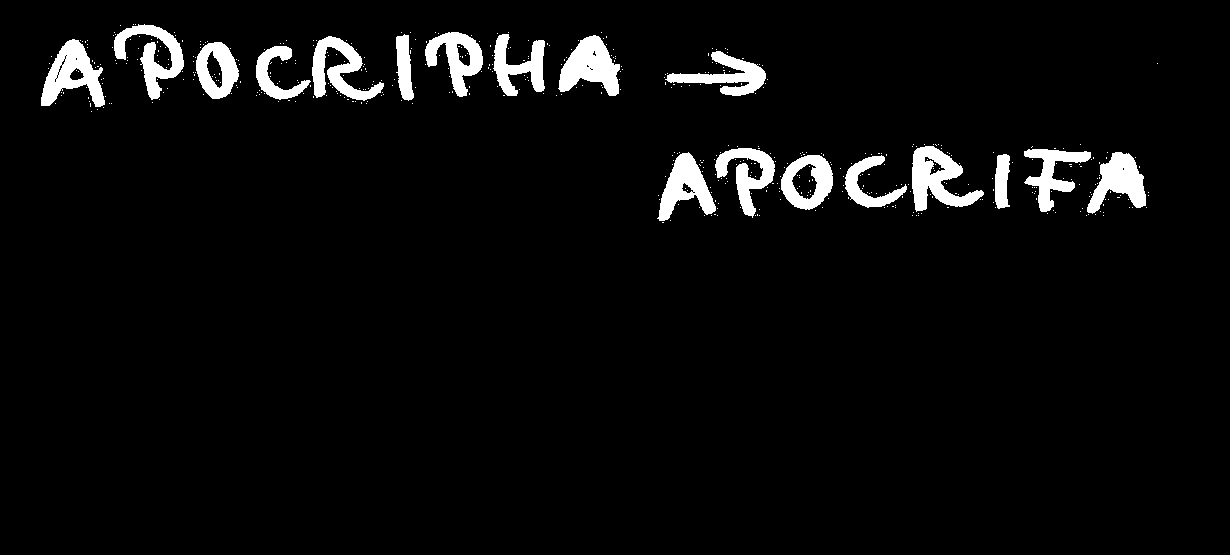 APOCRIPHA →
APOCRIFA